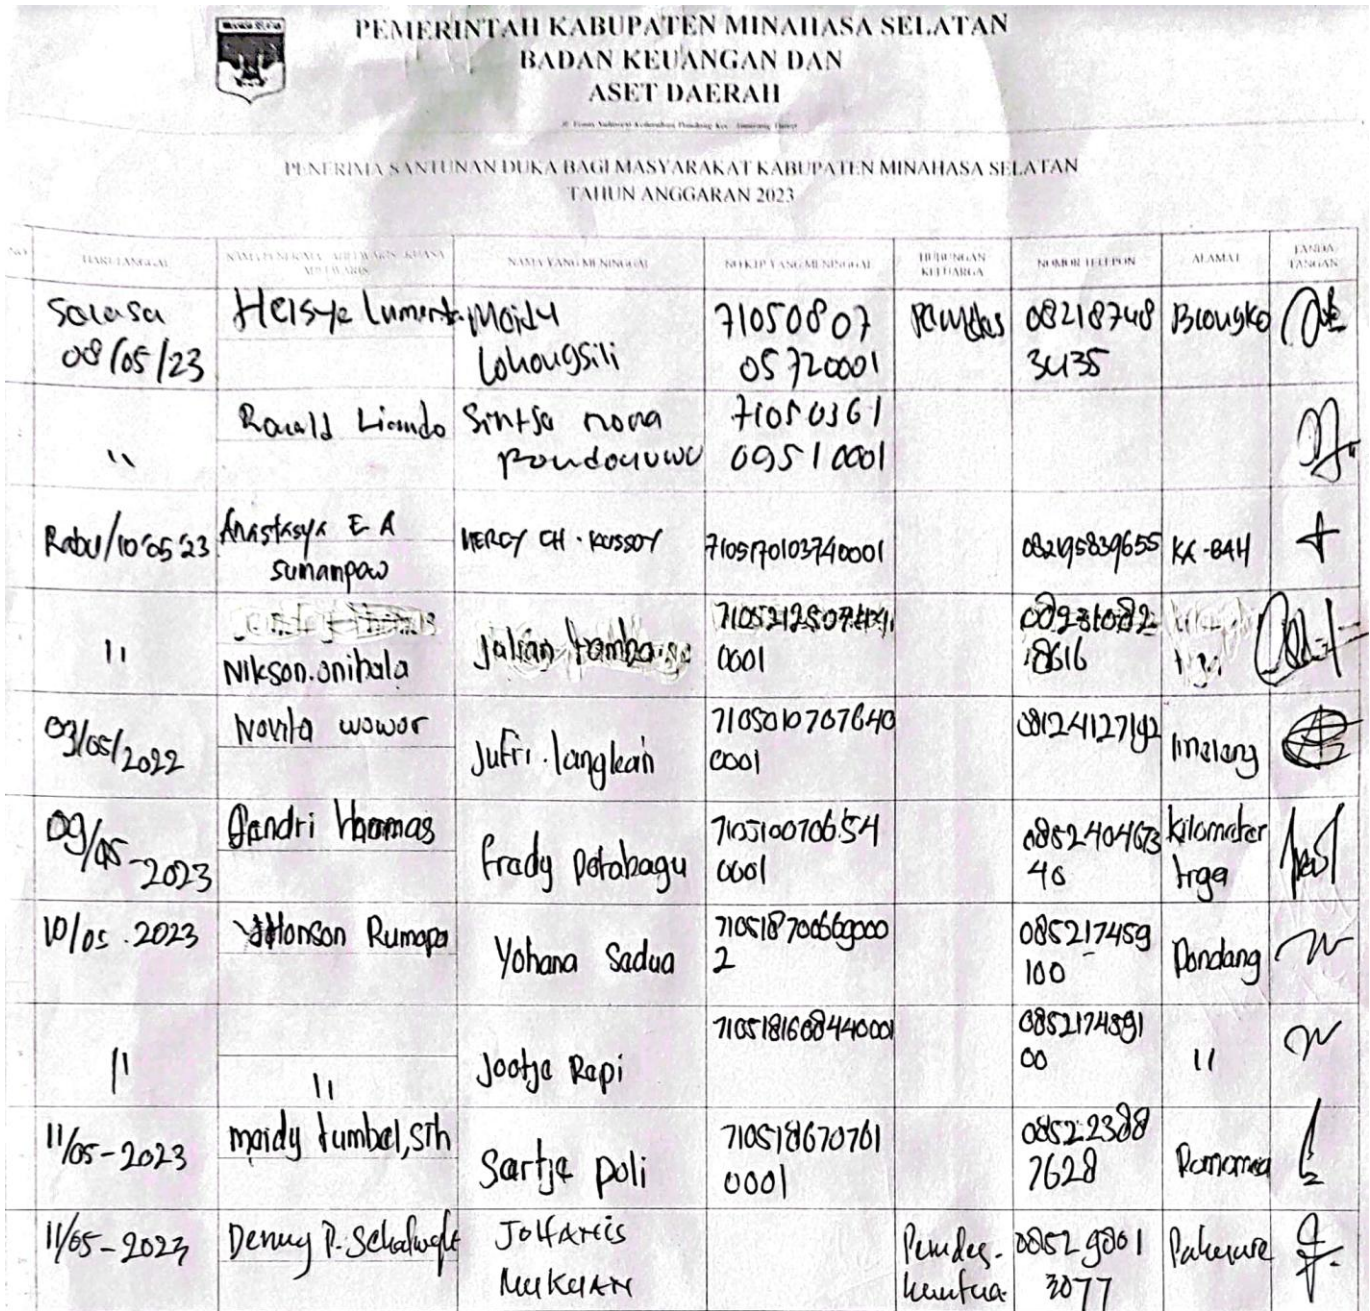 PEMERINTAH KABUPATEN MINAHASA SELATAN
BADAN KEUANGAN DAN
ASET DAERAH
PENERIMA SANTUNAN DUKA BAGI MASYARAKAT KABUPATEN MINAHASA SELATAN
TAHUN ANGGARAN 2023
NO HARI/TANGGAL NAMA PENERIMA AHLI WARIS / KUASA AHLI WARIS NAMA YANG MENINGGAL NO KTP YANG MENINGGAL HUBUNGAN KELUARGA NOMOR TELEPON ALAMAT TANDA TANGAN
Selasa 08/05/23 Heisye Lumenta Maidy 71050807 05720001 08218748 3435 Blongko
" Ronald Liando Sintje nova 71050361 09510001
Rabu/10 05 23 Anastasya E A Sumanpow MERCY CH. KUSSOY 7105170103740001 082195839655 KA-BAH
" Nikson.onibala Julian 0001 18616
03/05/2022 Novita wowor Jufri.langkain 7105010707640 0001 08124127192
09/05-2023 Hendri thomas frady Potabagu 7105100706540001 0852404673 40 kilometer tiga
10/05.2023 Rumopa Yohana Sadua 710518700669000 2 085217459 100 Pondang
" " Jootje Rapi 7105181608440001 0852174591 00 "
11/05-2023 maidy tumbel,sth Sartje poli 710518670761 0001 08522388 7628
11/05-2023 Denny P. JOLFANIS Pemdes- 08529801 3077